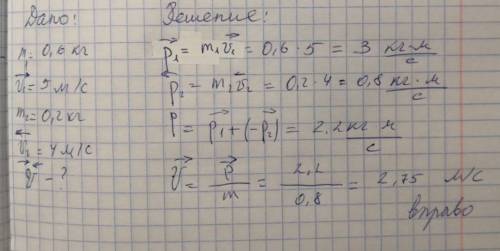 Дано:
m₁ = 0,6 кг
v⃗₁ = 5 м/с
m₂ = 0,2 кг
v⃖₂ = 4 м/с
v⃡ - ?
Решение:
p⃗₁ = m₁v⃗₁ = 0,6 · 5 = 3 кг·м/с
p⃖₂ = m₂v⃖₂ = 0,2 · 4 = 0,8 кг·м/с
p = p⃗₁ + (-p⃗₂) = 2,2 кг м/с
v⃗ = p⃗/m = 2,2/0,8 = 2,75 м/с
вправо